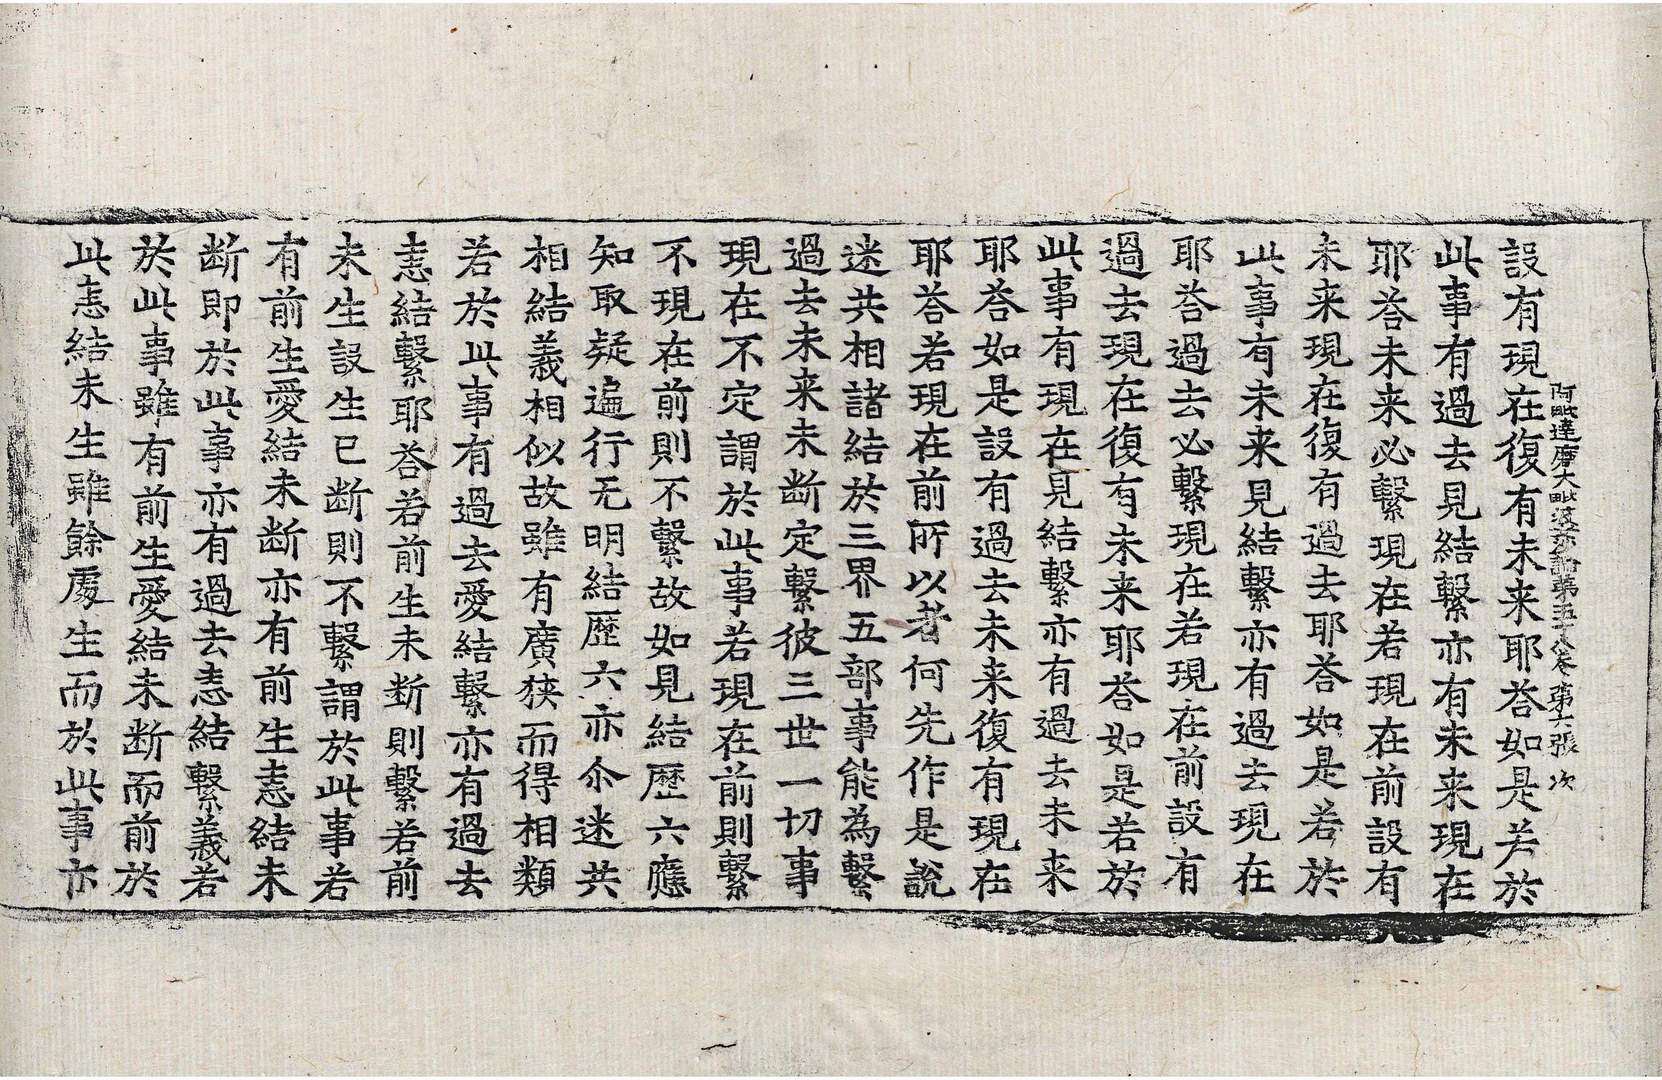 阿毗達磨大毗婆沙論第五十八卷 第六張 次
設有現在復有未来耶荅如是若於
此事有過去見結繫亦有未来現在
耶荅未来必繫現在若現在前設有
未来現在復有過去耶荅如是若於
此事有未来見結繫亦有過去現在
耶荅過去必繫現在若現在前設有
過去現在復有未来耶荅如是若於
此事有現在見結繫亦有過去未来
耶荅如是設有過去未来復有現在
耶荅若現在前所以者何先作是說
迷共相諸結於三界五部事能為繫
過去未来未断定繫彼三世一切事
現在不定謂於此事若現在前則繫
不現在前則不繫故如見結歷六應
知取疑遍行无明結歷六亦尒迷共
相結義相似故雖有廣狹而得相類
若於此事有過去愛結繫亦有過去
恚結繫耶荅若前生未断則繫若前
未生設生已断則不繫謂於此事若
有前生愛結未断亦有前生恚結未
断即於此事亦有過去恚結繫義若
於此事雖有前生愛結未断而前於
此恚結未生雖餘處生而於此事亦